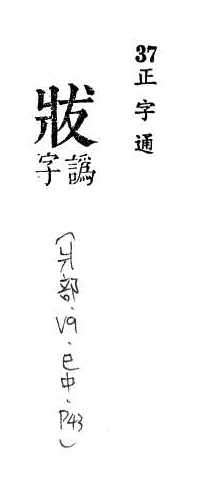 37正字通
⿰爿犮
譌字
(爿部.V9.巳中.P43)